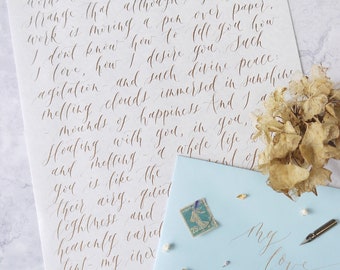 strange that although my
work is moving a pen over paper,
I don't know how to tell you how
I love, how I desire you. Such
agitation and such divine peace:
melting clouds immersed in sunshine
mounds of happiness And I
floating with you, in you,
and melting a whole life
you is like the
their airy, quiet
lightness and
heavenly varied
tint my inex
my
love